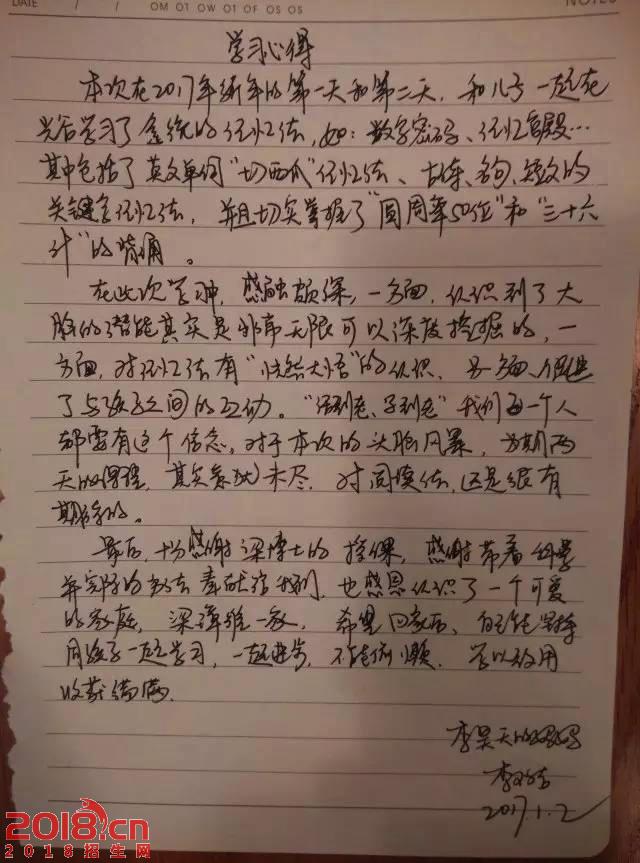 DATE / /
OM O1 OW O1 OF OS OS
学习心得
本次在2017年新年的第一天和第二天，和儿子一起在
光谷学习了系统的记忆法，如：数字密码、记忆宫殿…
其中包括了英文单词"切西瓜"记忆法、古诗、名句、短文的
关键字记忆法，并且切实掌握了"圆周率50位"和"三十六
计"的背诵。
在此次学习中，感触颇深，一方面，认识到了大
脑的潜能其实是非常无限可以深度挖掘的，一
方面，对记忆法有"恍然大悟"的认识，另一方面，促进
了与孩子之间的互动。"活到老、学到老"我们每一个人
都要有这个信念。对于本次的头脑风暴，为期两
天的课程，其实意犹未尽，对阅读法，还是很有
期待的。
最后，十分感谢梁博士的授课，感谢带着科学
的方法奉献给我们，也感恩认识了一个可爱
的家庭，梁 一家，希望回家后，能坚持
同孩子一起学习，一起进步，不 ，学以致用
收获满满。
李昊天的妈妈
李
2017.1.2
2018.cn
2018招生网